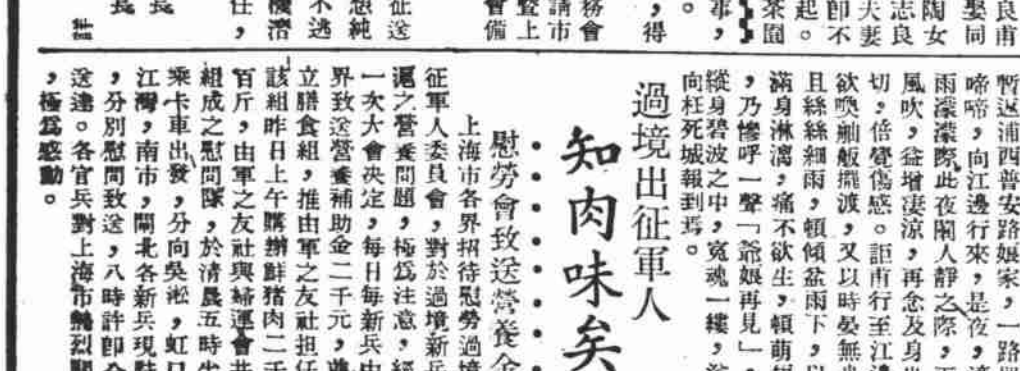 良甫
娶同
陶女
志良
夫妻
卽不
起。
茶園
事，
。
，得
務會
請市
暨上
會備
征送
不逃
任，
長
長
暫返浦西普安路娘家，一路
啼啼，向江邊行來，是夜，
雨濛濛際此夜闌人靜之際，
風吹，益增凄涼，再念及身
切，倍覺傷感。詎甫行至江邊
欲喚舢舨擺渡，又以時晏無
且絲絲細雨，頓傾盆雨下，以
滿身淋漓，痛不欲生，頓萌
，乃慘呼一聲「爺娘再見」，
縱身碧波之中，寃魂一縷，
向枉死城報到焉。
過境出征軍人
知肉味矣
慰勞會致送營養金
上海市各界招待慰勞過境
征軍人委員會，對於過境新兵
滬之營養問題，極爲注意，經
一次大會决定，每日每新兵由
界致送營養補助金二千元，
立膳食組，推由軍之友社担任
該組昨日上午購辦鮮猪肉二千
百斤，由軍之友社與婦運會共
組成之慰問隊，於清晨五時
乘卡車出發，分向吳淞，虹口
江灣，南市，閘北各新兵現駐
，分別慰問致送，八時許卽全
送達。各官兵對上海市熱烈
，極爲感動。